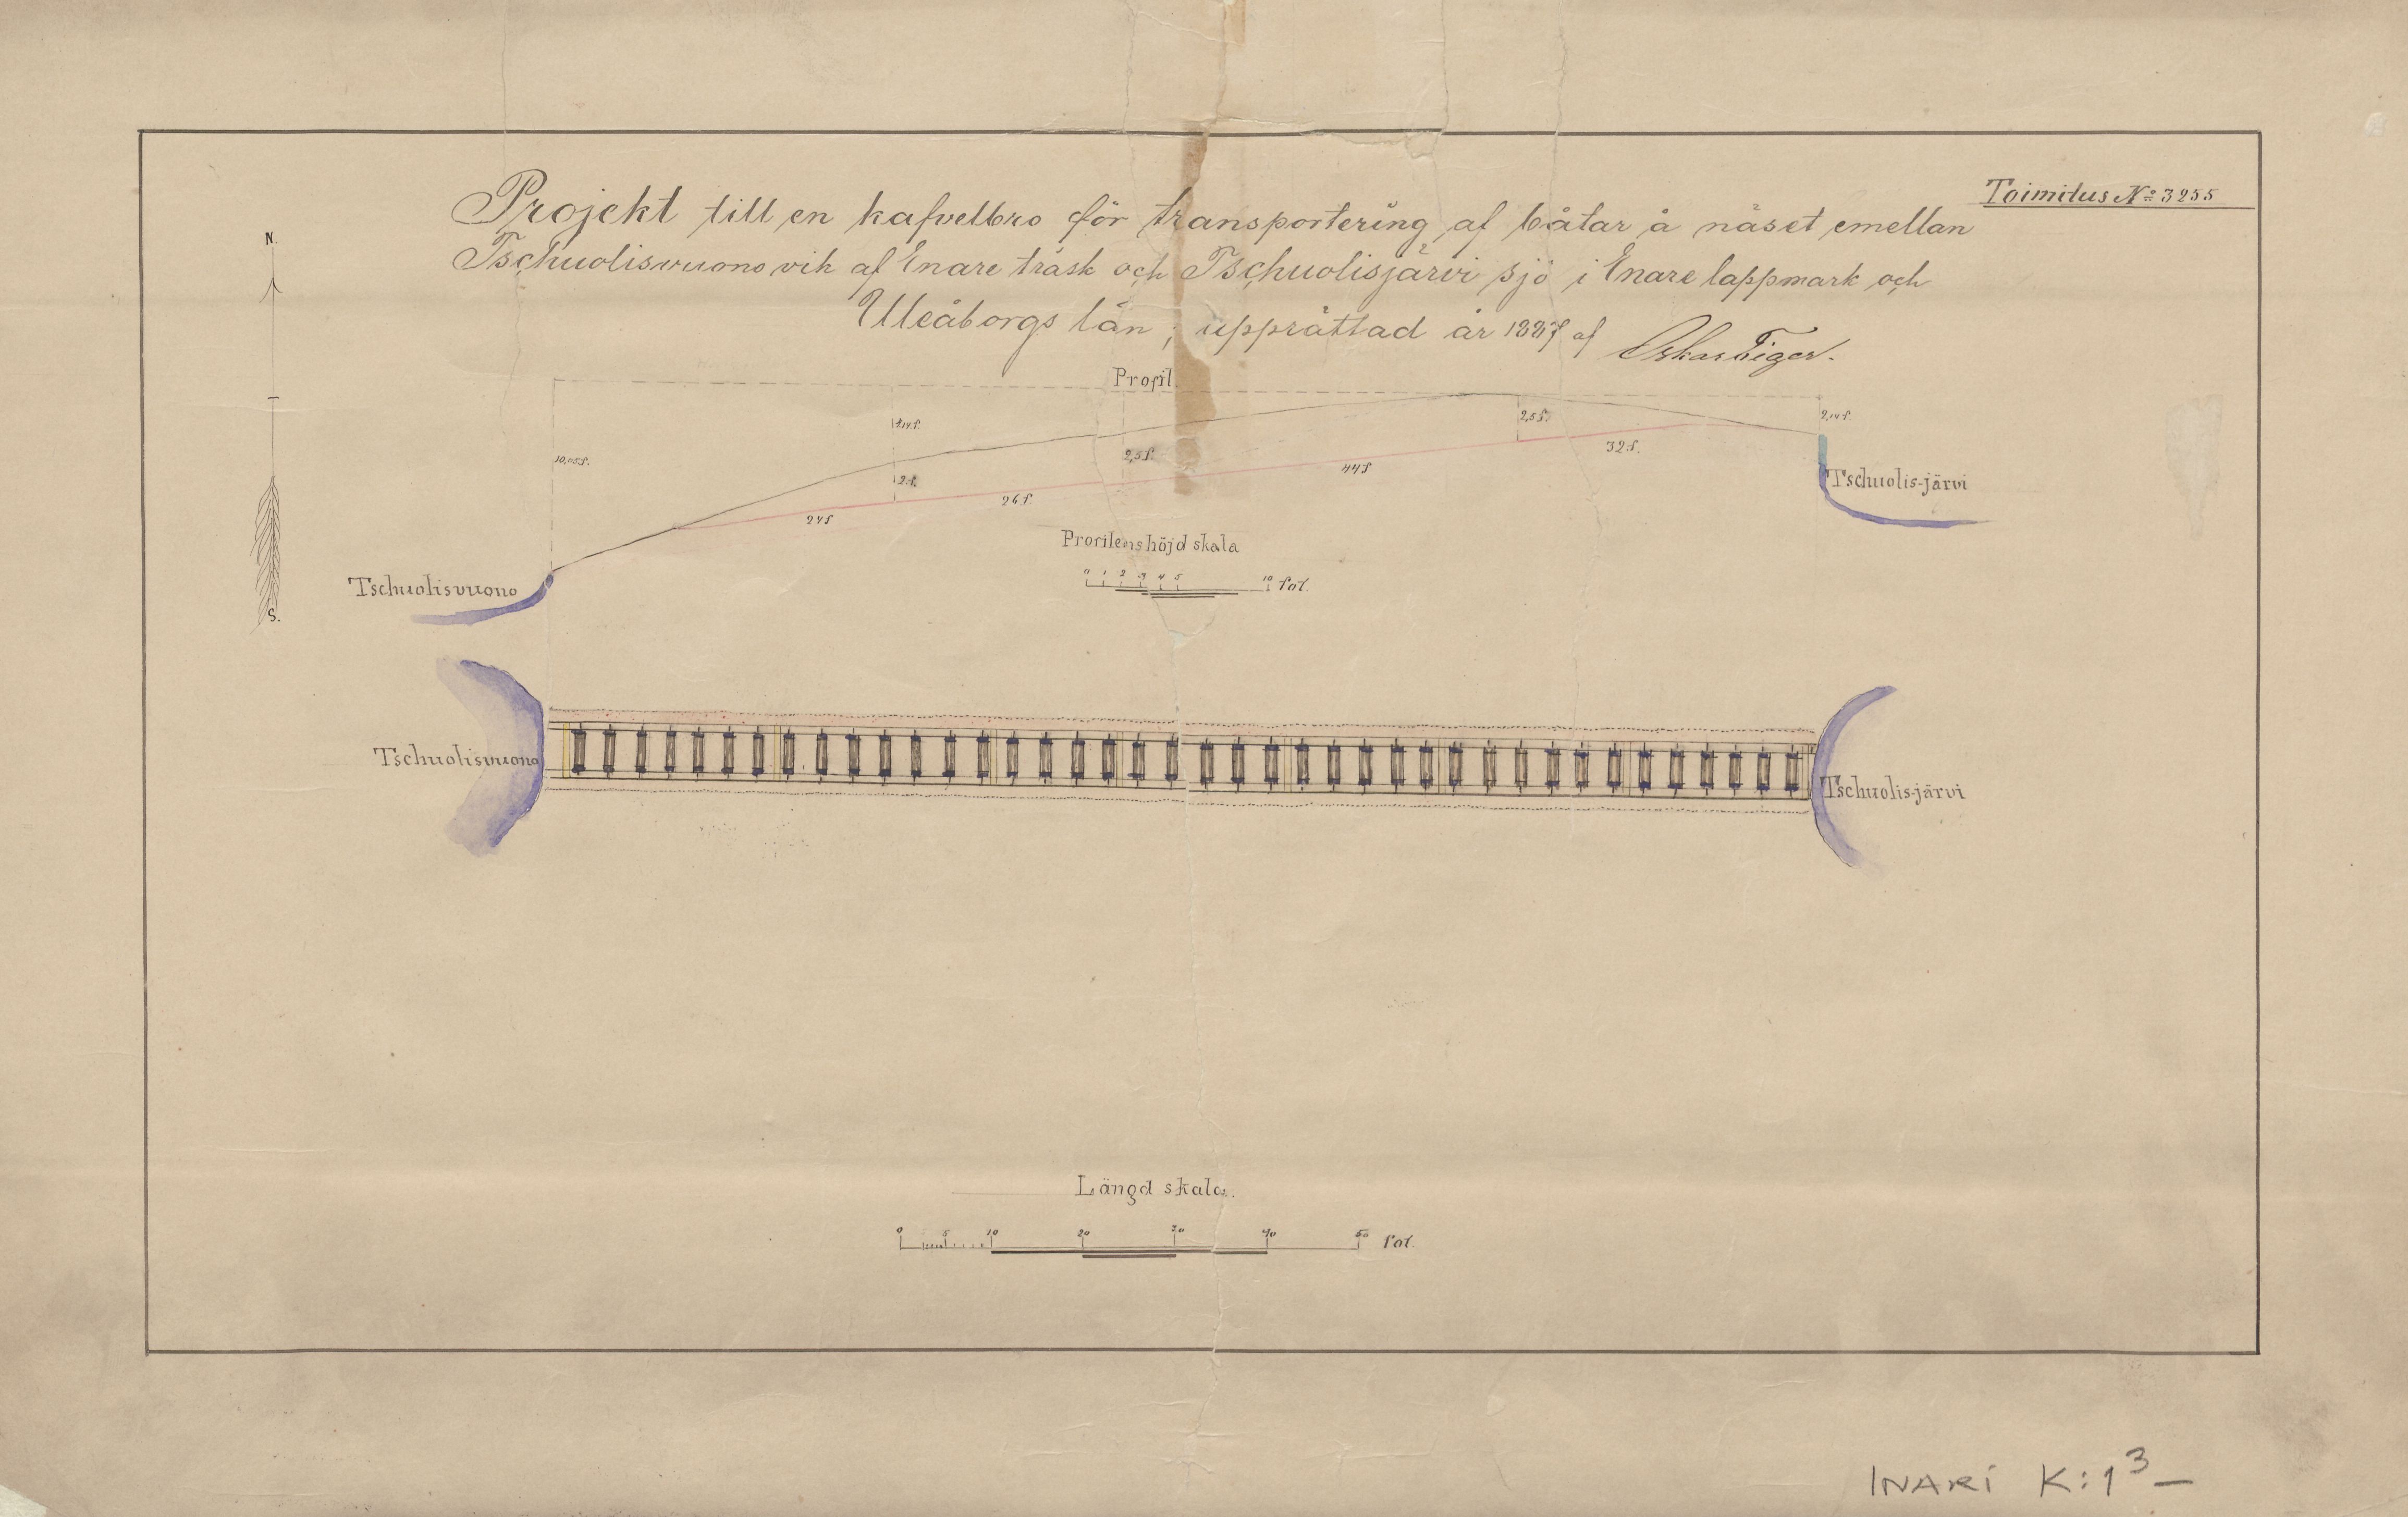 Toimitus No 3255
Projekt till en kafvelbro för transportering af båtar å näset emellan
Tschuolisvuono vik af Enare träsk och Tschuolisjärvi sjö i Enare lappmark och
Uleåborgs län; upprättad år 1887 af
N.
Profil.
10,05f.
2f.
2,5f.
2,5f.
2,14f.
24f
26f.
44f
32f.
Tschuolis-järvi
Profilens höjd skala
0 1 2 3 4 5 10 fot.
Tschuolisvuono
S.
Tschuolisvuono
Tschuolis-järvi
Längd skala.
0 5 10 20 30 40 50 fot.
INARI K:1³–